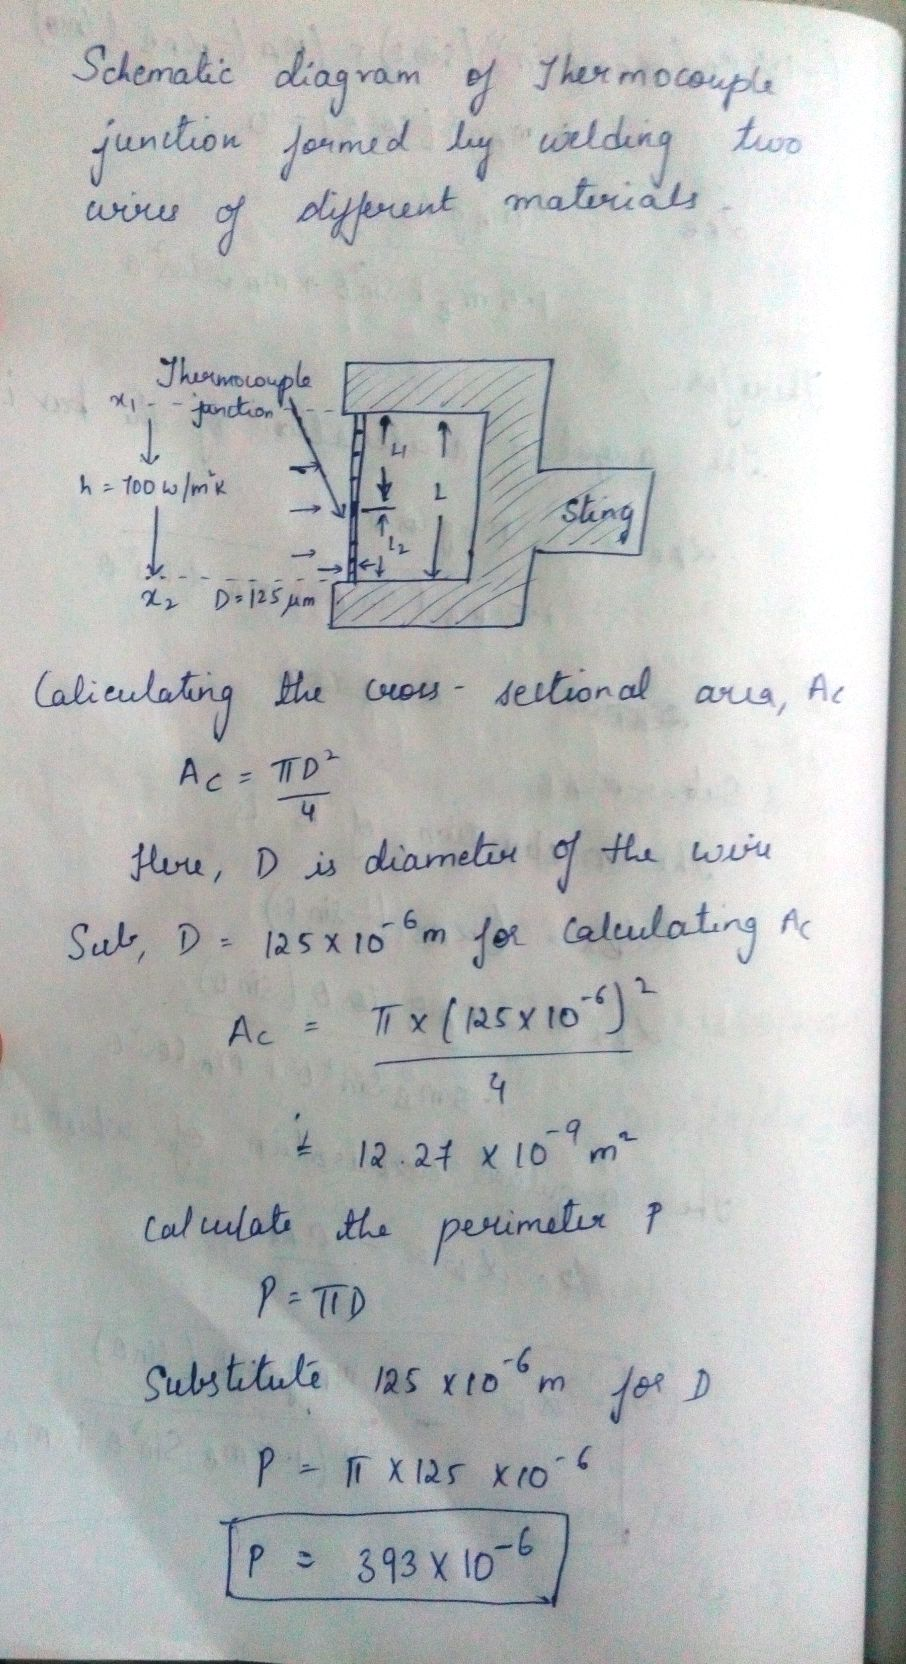 Schematic diagram of Thermocouple
junction formed by welding two
wires of different materials.
Thermocouple
junction
x₁
h = 700 w/m²k
L₁
L
L₂
Sting
x₂ D=125 μm
Caliculating the cross-sectional area, Ac
Ac = πD²/4
Here, D is diameter of the wire
Sub, D = 125 x 10⁻⁶ m for Calculating Ac
Ac = π x (125 x 10⁻⁶)²/4
= 12.27 x 10⁻⁹ m²
Calculate the perimeter P
P = πD
Substitute 125 x 10⁻⁶ m for D
P = π x 125 x 10⁻⁶
P = 393 x 10⁻⁶